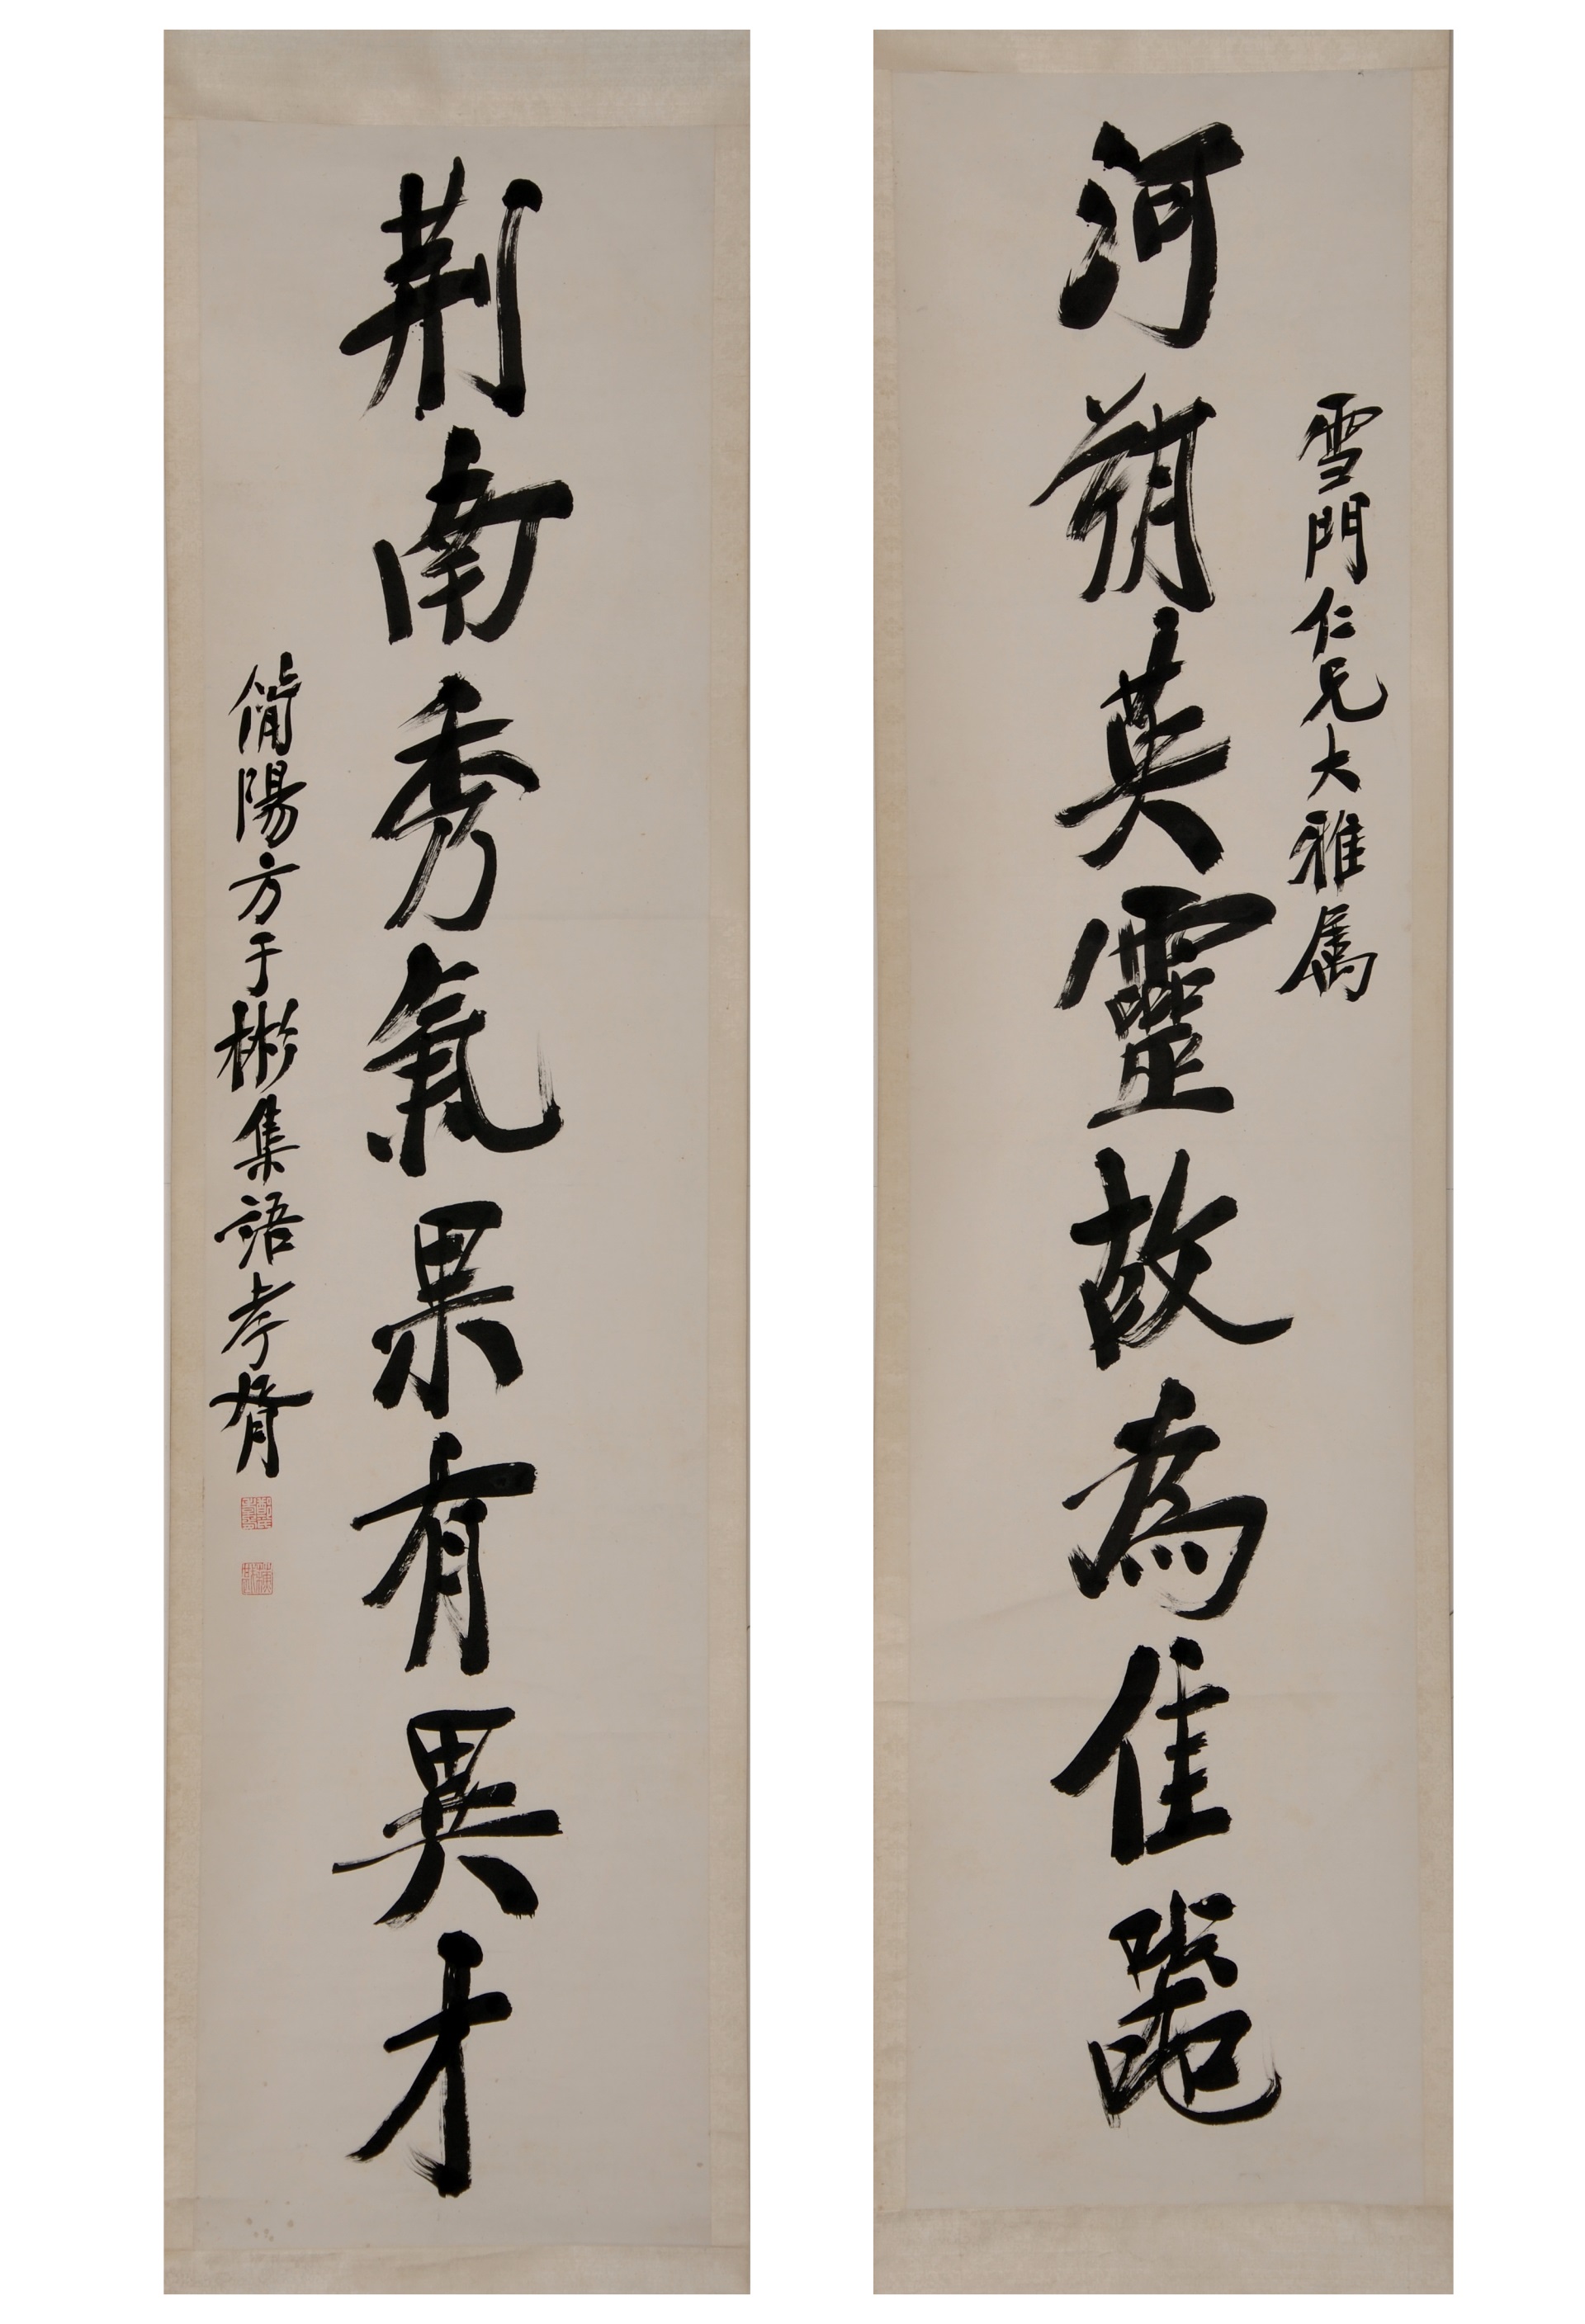 河朔英靈故為佳器
雪門仁兄大雅属
荆南秀氣果有異才
簡陽方于彬集語孝胥